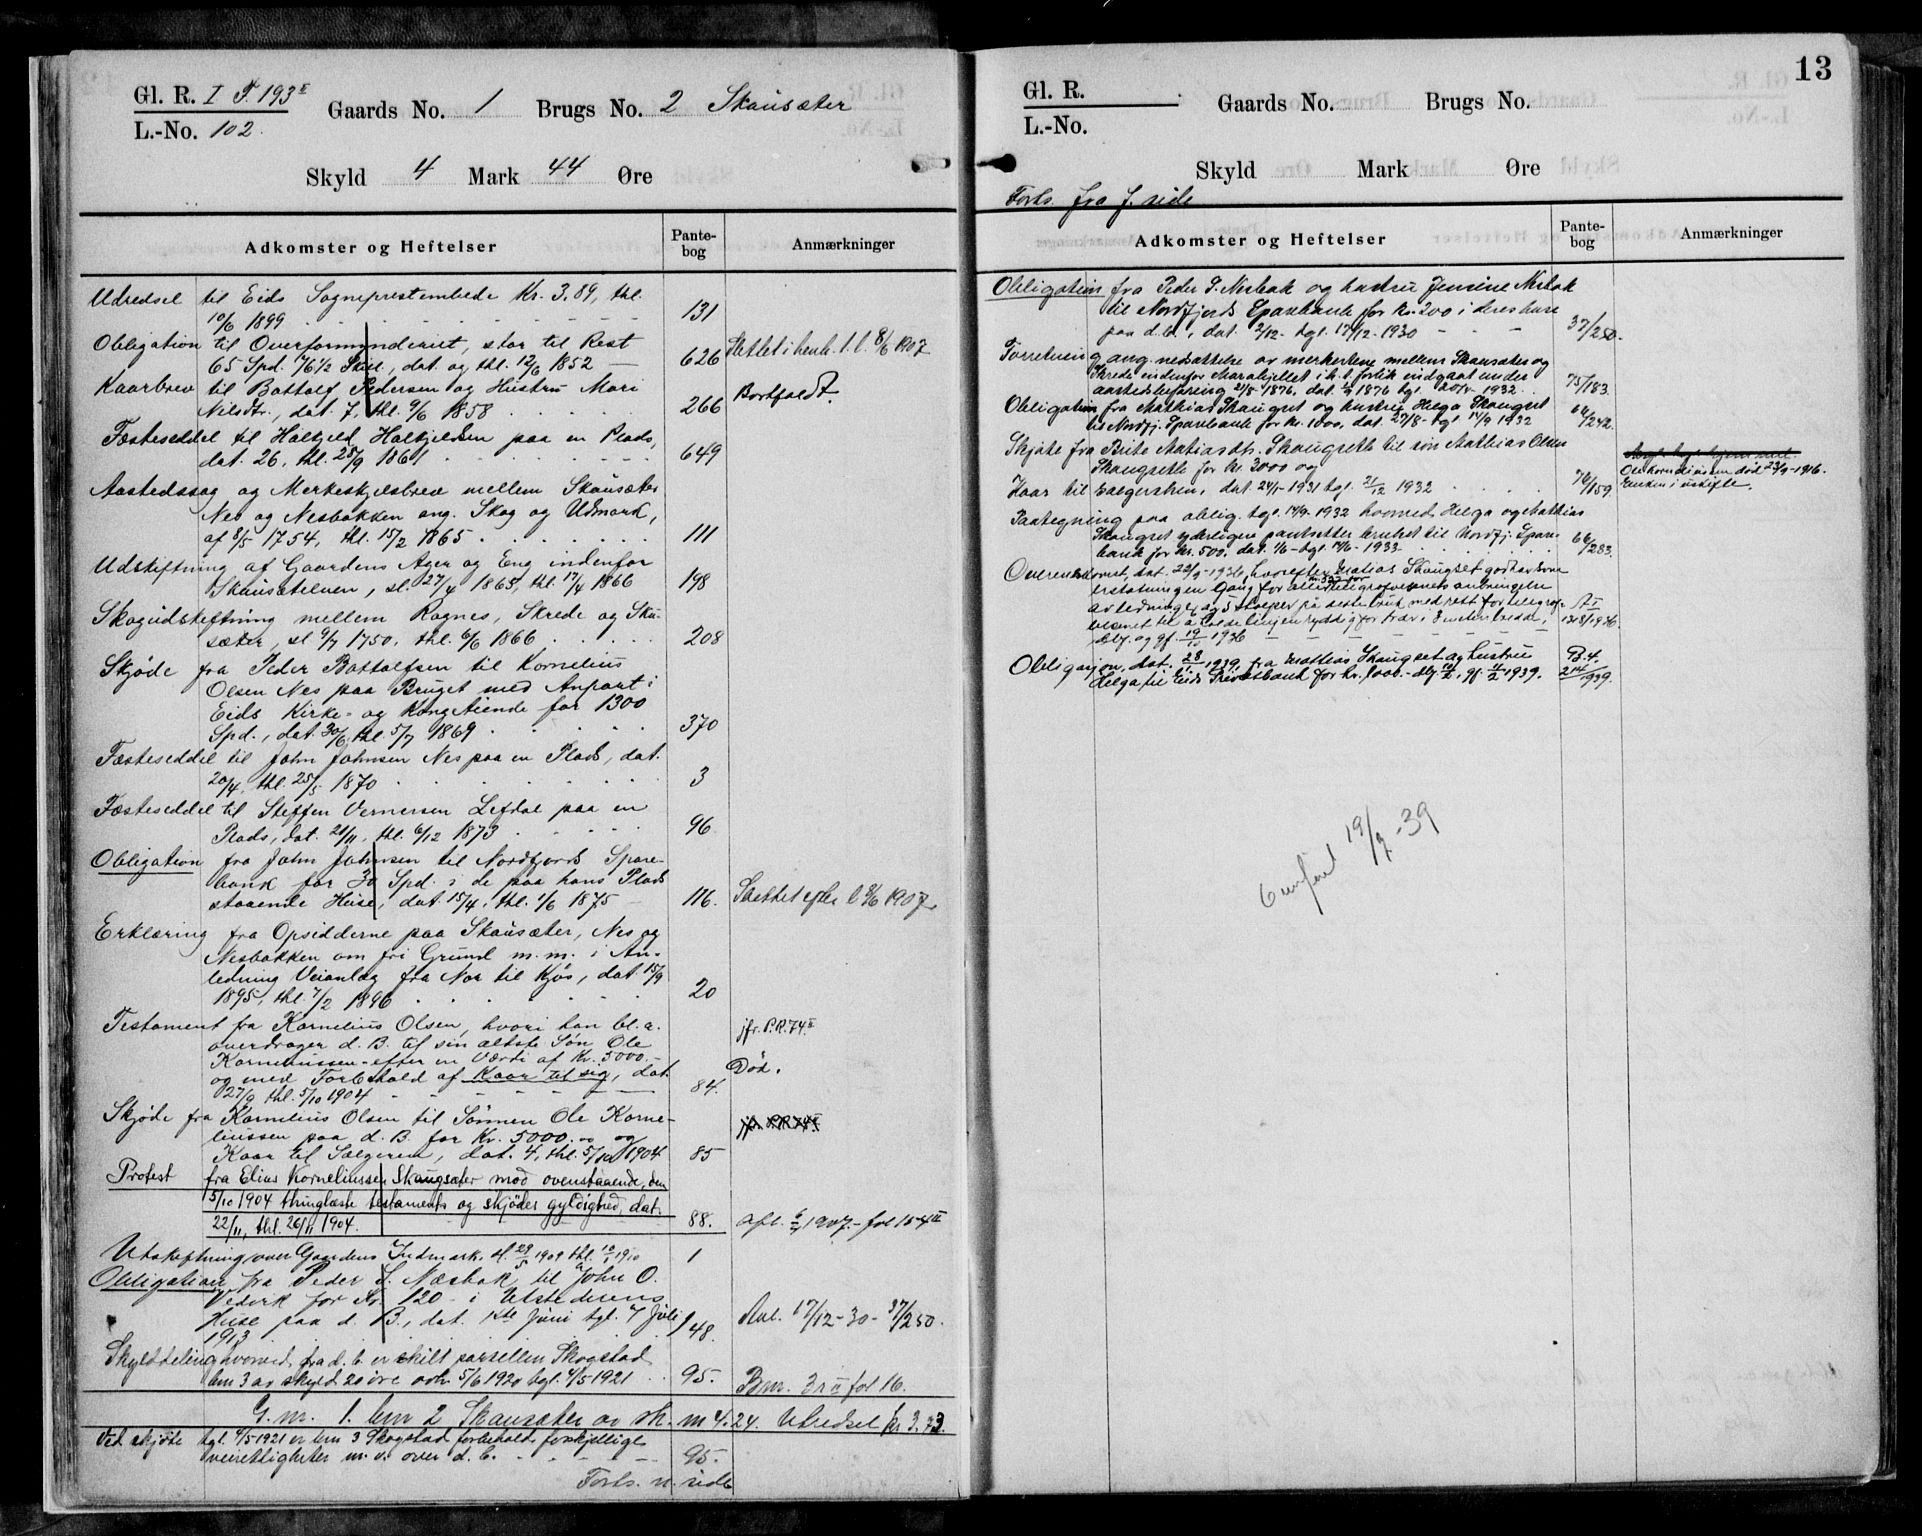 Gl. R. I P. 193 II
L.-No. 102.
Gaards No. 1 Brugs No. 2 Skausæter
Skyld 4 Mark 44 Øre
Adkomster og Heftelser
Pante-
bog
Anmærkninger
Udredsel til Eids Sogneprestembede Kr. 3.89, thl.
10/6 1899 131
Obligation til Overformynderiet, stor til Rest
65 Spd. 76 1/2 Skil., dat. og thl. 12/6 1852 626 Slettet i henh. t. l. 8/6 1907
Kaarbrev til Battolf Pedersen og Hustru Mari
Nilsdtr., dat. 7, thl. 9/6 1858 266 Bortfaldt.
Fæsteseddel til Halkjeld Halkjeldsen paa en Plads,
dat. 26, thl. 25/9 1861 649
Aastedssag og Merkeskjelsbrev mellem Skausæter
Nes og Nesbakken ang. Skog og Udmark,
af 8/5 1754, thl. 15/2 1865 111
Udskiftning af Gaardens Ager og Eng indenfor
Skausætelven, sl. 27/4 1865, thl. 17/4 1866 198
Skogudskiftning mellem Ragnes, Skrede og Skau-
sæter, sl. 9/7 1750, thl. 6/6 1866 208
Skjøde fra Peder Battalfsen til Kornelius
Olsen Nes paa Bruget med Anpart i
Eids Kirke- og Kongetiende for 1300
Spd., dat. 30/6, thl. 5/7 1869 370
Fæsteseddel til John Johnsen Nes paa en Plads, dat.
20/4, thl. 25/5 1870 3
Fæsteseddel til Steffen Vernersen Lefdal paa en
Plads, dat. 21/11, thl. 6/12 1873 96
Obligation fra John Johnsen til Nordfjords Spare-
bank for 30 Spd. i de paa hans Plads
staaende Huse, dat. 15/4, thl. 1/6 1875 116. Slettet efter l. 8/6 1907.
Erklæring fra Opsidderne paa Skausæter, Nes og
Nesbakken om fri Grund m. m. i An-
ledning Veianlæg fra Nor til Kjøs, dat. 15/9
1895, thl. 7/2 1896 20
Testament fra Kornelius Olsen, hvori han bl. a.
overdrager d. B. til sin ældste Søn Ole
Korneliussen efter en Værdi af Kr. 5000.-
og med Forbehold af Kaar til sig, dat.
27/9 thl. 5/10 1904 84.
jfr. P.R. 74 II
Død.
Skjøde fra Kornelius Olsen til Sønnen Ole Korne-
liussen paa d. B. for Kr. 5000.00 og
Kaar til Sælgeren, dat. 4, thl. 5/10 1904 85
jfr. P.R. 74 II
Protest fra Elias Korneliussen Skaugsæter mod ovenstaaende, den
5/10 1904 thinglæste testaments og skjødes gyldighed, dat.
22/11, thl. 26/11 1904. 88.
Utskiftning over Gaardens Indmark, sl. 29/5 1909 thl. 10/1 1910 1
Obligation fra Peder S. Næsbak til John O.
Vedvik for Kr. 120 - i Utstederens
Huse paa d. B., dat. 1ste Juni tgl. 7 Juli
1913 148. Avl. 17/12-30 - 37/250.
Skylddeling hvorved fra d. b. er skilt parsellen Skogstad
bnr. 3 av skyld 20 øre avh. 5/6 1920 tgl. 4/5 1921 95. Bnr. 3 fol 16.
G. nr. 1. bnr 2 Skausæter av sk. m 4.24. Utredsel kr 3.73.
Ved skjøte tgl. 4/5 1921 er bnr 3 Skogstad forbeholdt forskjellige
veirettigheter m. v. over d. b. 95.
Forts. n. side
13
Gl. R.
L.-No.
Gaards No. Brugs No.
Skyld Mark Øre
Forts. fra f. side
Adkomster og Heftelser
Pante-
bog
Anmærkninger
Obligation fra Peder S. Nesbak og hustru Jensine Nesbak
til Nordfjords Sparebank for kr. 200 i deres huse
paa d. b., dat. 2/12 - tgl. 17/12 - 1930 37/250.
Forretning ang. nedsættelse av merkestene mellem Skausæter og
Skrede indenfor i h. t. forlik indgaat under
aastedsbefaring 21/8-1876, dat. 1876 tgl. 1932 75/183.
Obligation fra Mathias Skaugset og hustru Helga Skaugset
til Nordfj. Sparebank for kr. 1000, dat. 27/8 - tgl. 14/9 1932 64/242.
Skjøte fra Brite Matiasdtr. Skaugseth til søn Mathias Olsen
Skaugseth for kr. 3000 og
Kaar til sælgersken, dat. 24/5-1931 tgl. 21/12 1932 76/159.
Ole Korneliussen død 23/9-1916.
Enken i uskifte.
Paategning paa oblig. tgl. 14/9 1932 hvorved Helga og Mathias
Skaugset yderligere pantsetter bruket til Nordfj. Spare-
bank for kr. 500, dat. 1/6 - tgl. 14/6 - 1933 64/283.
Overenskomst, dat. 22/9-1936, hvorefter Matias Skaugset godtar som
erstatning en gang for alle kr. for telegrafvesenets anbringelse
av ledninger og 5 stolper på dette bruk med rett for telegraf-
vesenet til å holde linjen ryddig for trær i 8 meters bredde,
dbf. og gf. 19/10 1936
Obligasjon, dat. 28/1 1939, fra Mattias Skaugset og hustru
Helga, til Eids Privatbank for kr. 1000.- dbf. 10/2, gf. 11/2 1939. B. 4. 214/1939.
19/9-39